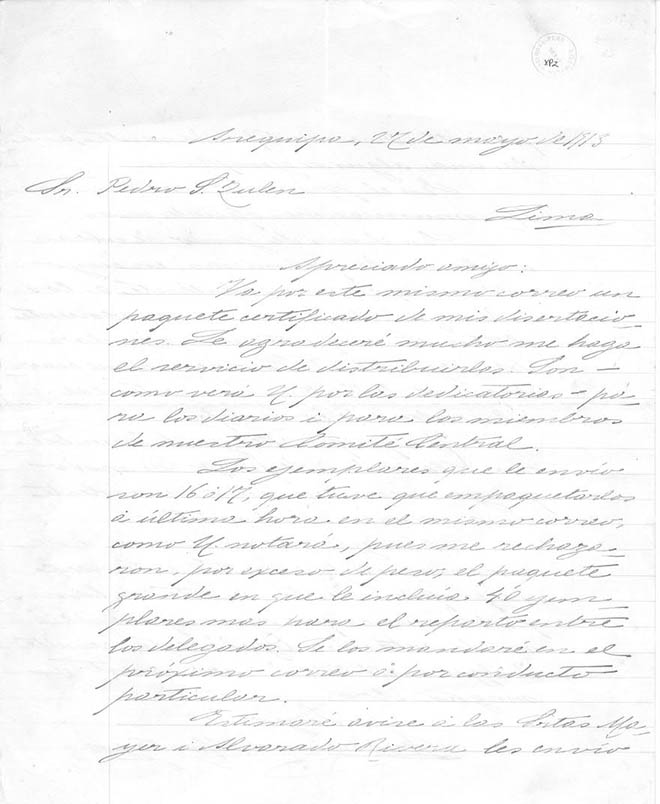 XPZ
Arequipa, 27 de mayo de 1913
Sr. Pedro S. Zulen
Lima
Apreciado amigo:
Va por este mismo correo un
paquete certificado de mis disertacio-
nes. Le agradeceré mucho me haga
el servicio de distribuirlas. Son -
como verá U. por las dedicatorias - pa-
ra los diarios i para los miembros
de nuestro Comité Central.
Los ejemplares que le envío
son 16 ó 17, que tuve que empaquetarlos
á última hora en el mismo correo,
como U. notará, pues me rechaza-
ron, por exceso de peso, el paquete
grande en que le incluía 40 ejem-
plares mas para el reparto entre
los delegados. Se los mandaré en el
próximo correo ó por conducto
particular.
Estimaré avise á las Srtas Ma-
yer i Alvarado Rivera les envío